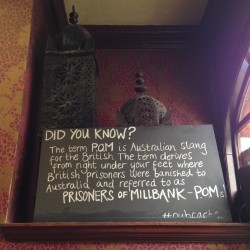 DID YOU KNOW?
The term POM is Australian slang
for the British. The term derives
from right under your feet where
British prisoners were banished to
Australia and referred to as
PRISONERS OF MILLBANK - POMs
#pubfacts